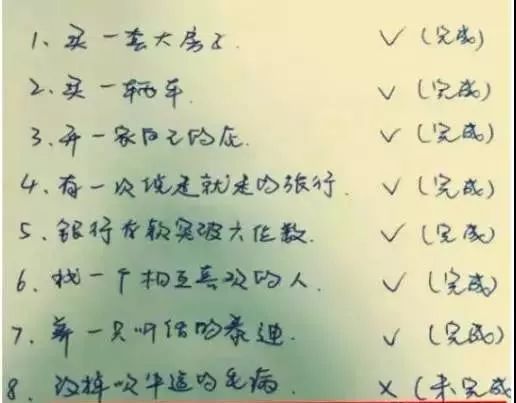 1、买一套大房子. ✓ (完成)
2、买一辆车. ✓ (完成)
3、开一家自己的店. ✓ (完成)
4、有一次说走就走的旅行. ✓ (完成)
5、银行存款突破六位数. ✓ (完成)
6、找一个相互喜欢的人. ✓ (完成)
7、养一只听话的泰迪. ✓ (完成)
8、改掉吹牛逼的毛病. × (未完成